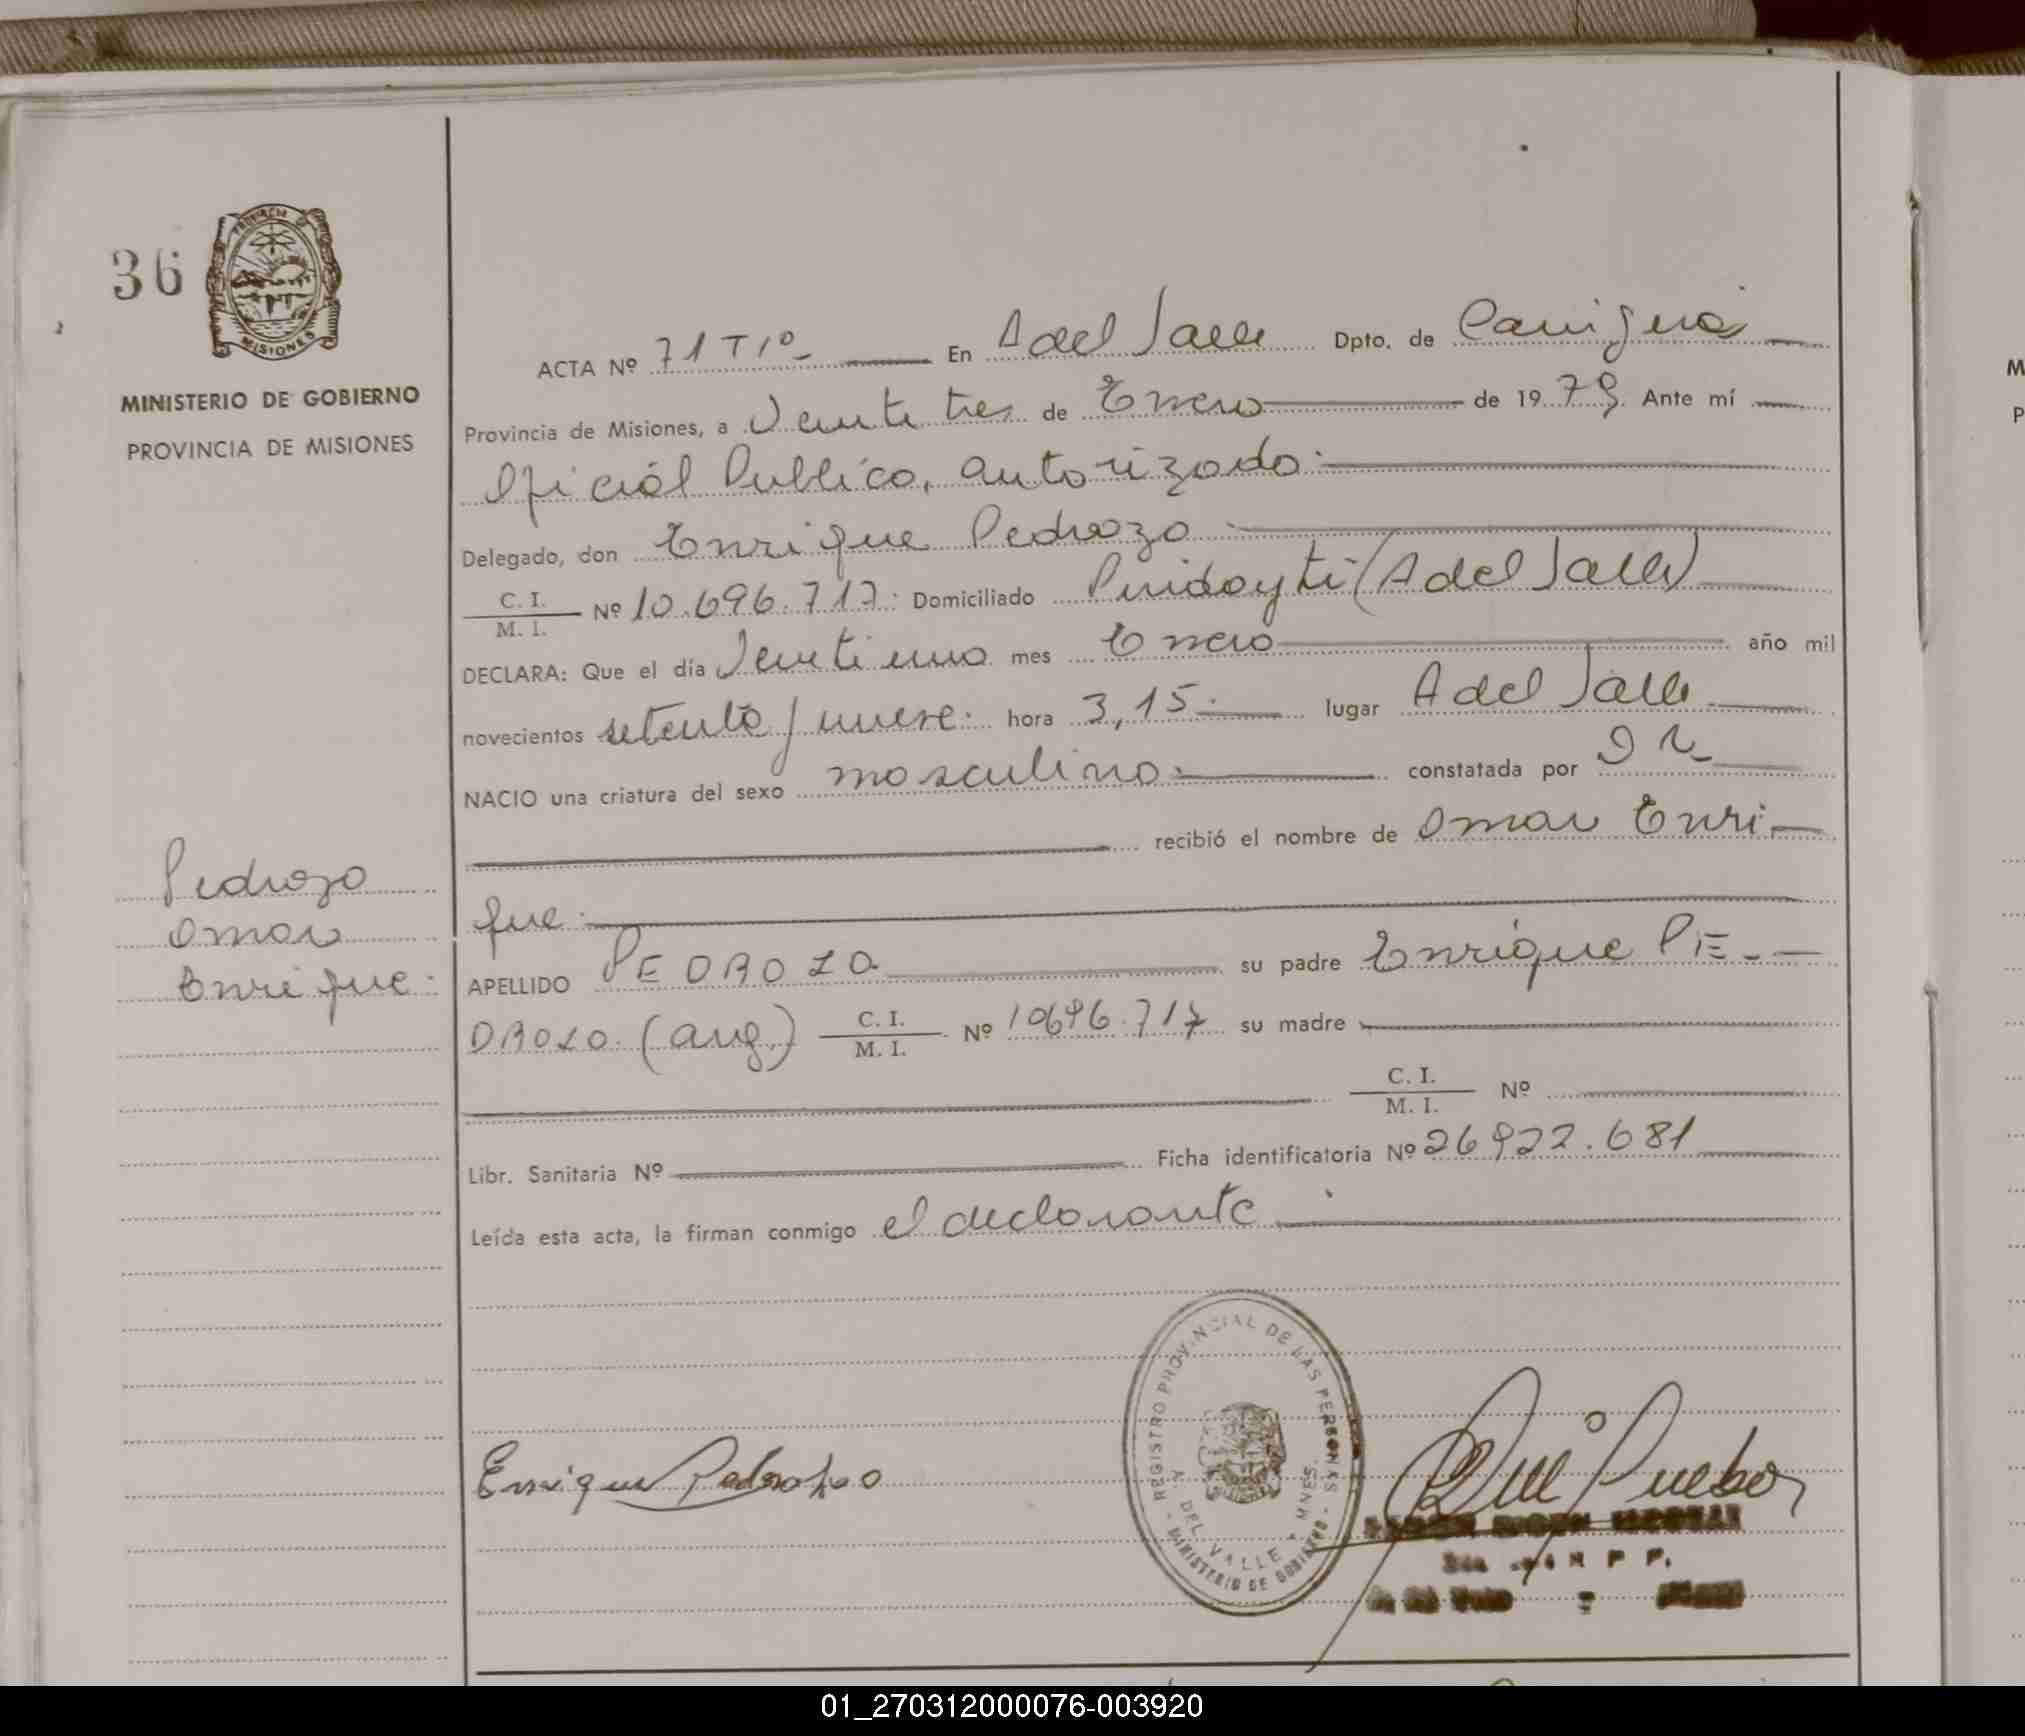 36
PROVINCIA DE
MISIONES
MINISTERIO DE GOBIERNO
PROVINCIA DE MISIONES
ACTA Nº 71 Tº 1º En A del Valle Dpto. de Cainguá
Provincia de Misiones, a Veintitres de Enero de 1979 Ante mí
Oficial Publico, autorizado.
Delegado, don Enrique Pedrozo
C. I.
M. I. Nº 10.696.717. Domiciliado (A del Valle)
DECLARA: Que el día Veintiuno mes Enero año mil
novecientos setenta y nueve. hora 3,15. lugar A del Valle
NACIO una criatura del sexo masculino. constatada por
recibió el nombre de Omar Enri-
que.
Pedrozo
Omar
Enrique.
APELLIDO PEDROZO su padre Enrique PE-
DROZO. (arg.) C. I.
M. I. Nº 10696.717 su madre
C. I.
M. I. Nº
Libr. Sanitaria Nº Ficha identificatoria Nº 26922.681
Leída esta acta, la firman conmigo el declarante
REGISTRO PROVINCIAL DE LAS PERSONAS - MINISTERIO DE GOBIERNO -
A. DEL VALLE - MNES.
Enrique Pedrozo
01_270312000076-003920